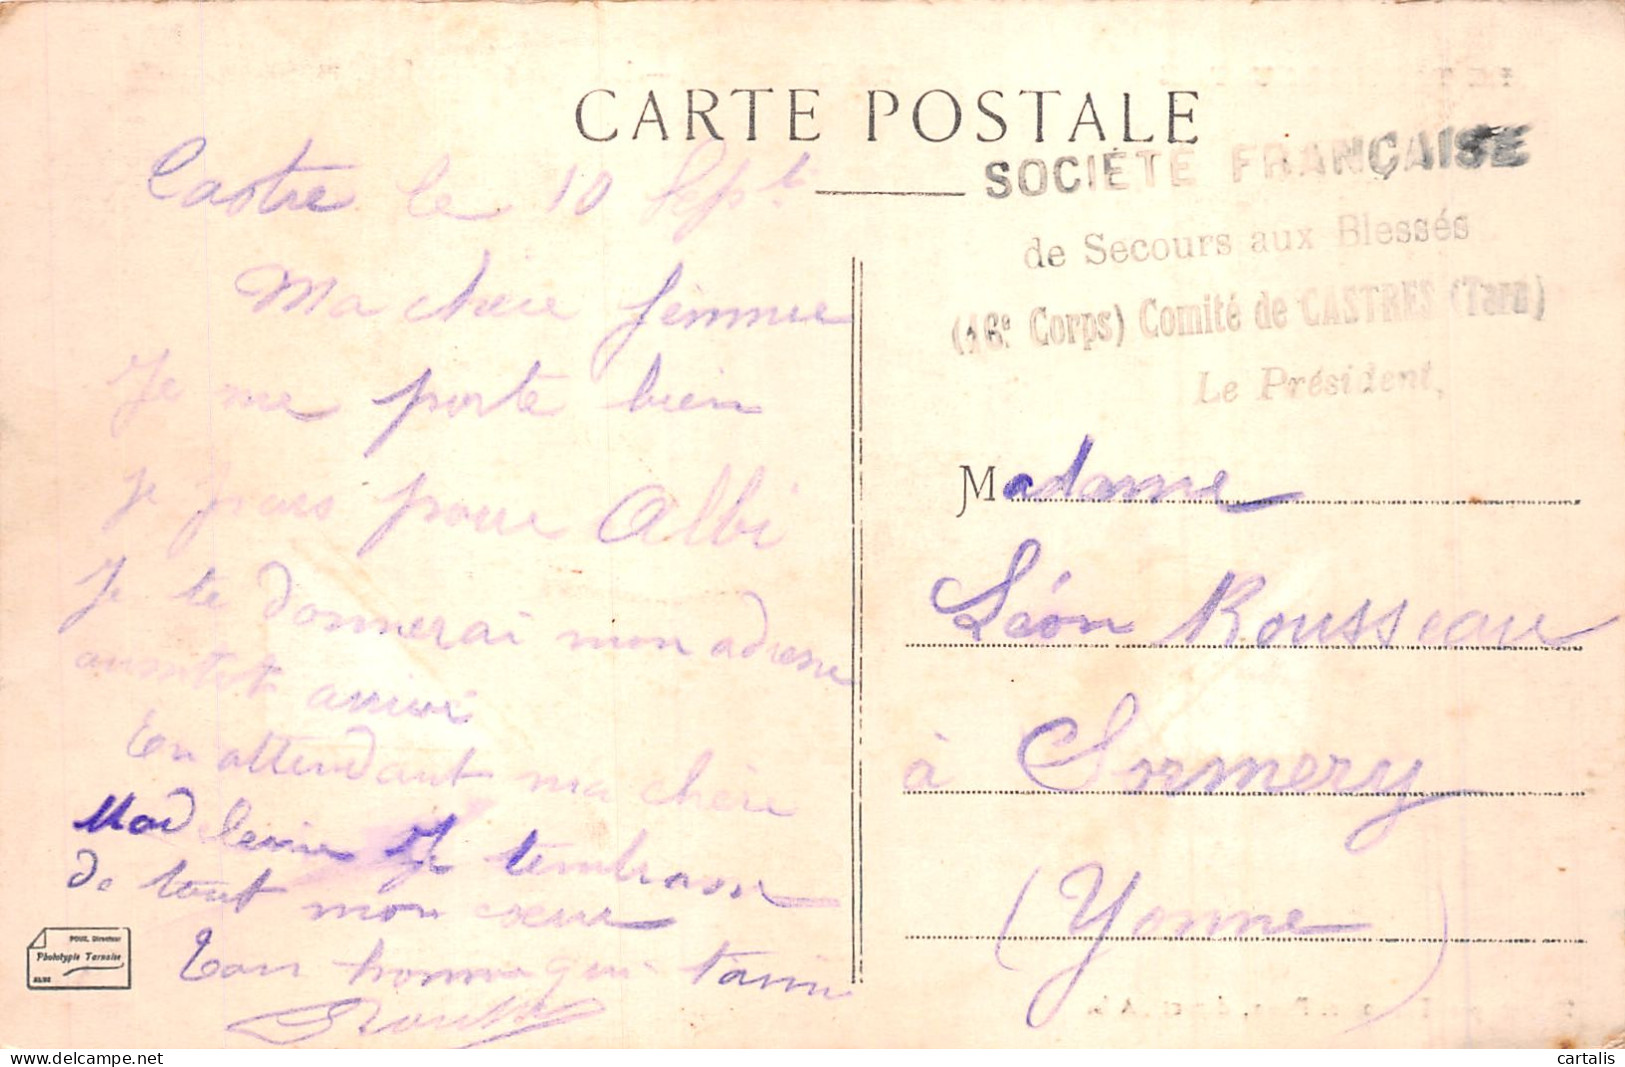 CARTE POSTALE
SOCIÉTÉ FRANÇAISE
de Secours aux Blessés
(16e Corps) Comité de CASTRES (Tarn)
Le Président,
Castre le 10 Sept
Ma chère femme
Je me porte bien
je pars pour Albi
Je te donnerai mon adresse
arrivé
En attendant ma chère
Madleine Je t'embrasse
de tout mon coeur
Ton homme qui t'aime
Madame
Léon Rousseau
à Sormery
(Yonne)
POUX, Directeur
Phototypie Tarnaise
ALBI
cartalis
www.delcampe.net